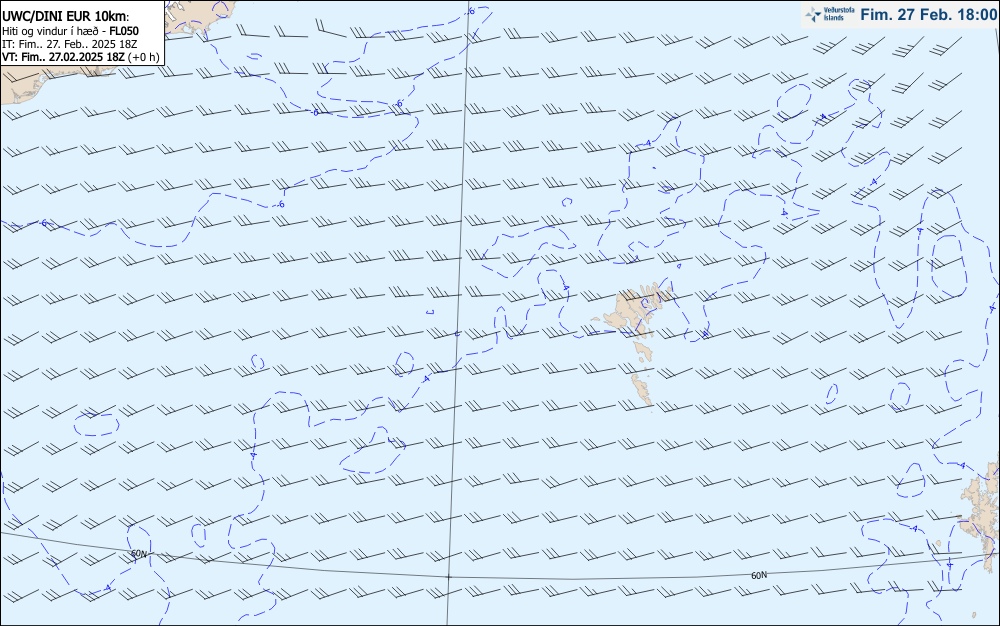 UWC/DINI EUR 10km:
Hiti og vindur í hæð - FL050
IT: Fim.. 27. Feb.. 2025 18Z
VT: Fim.. 27.02.2025 18Z (+0 h)
Veðurstofa
Íslands
Fim. 27 Feb. 18:00
-6
-6
-6
-4
-4
-4
-6
-6
-4
-4
-4
-4
-4
-4
-4
-4
-4
-4
-4
60N
60N